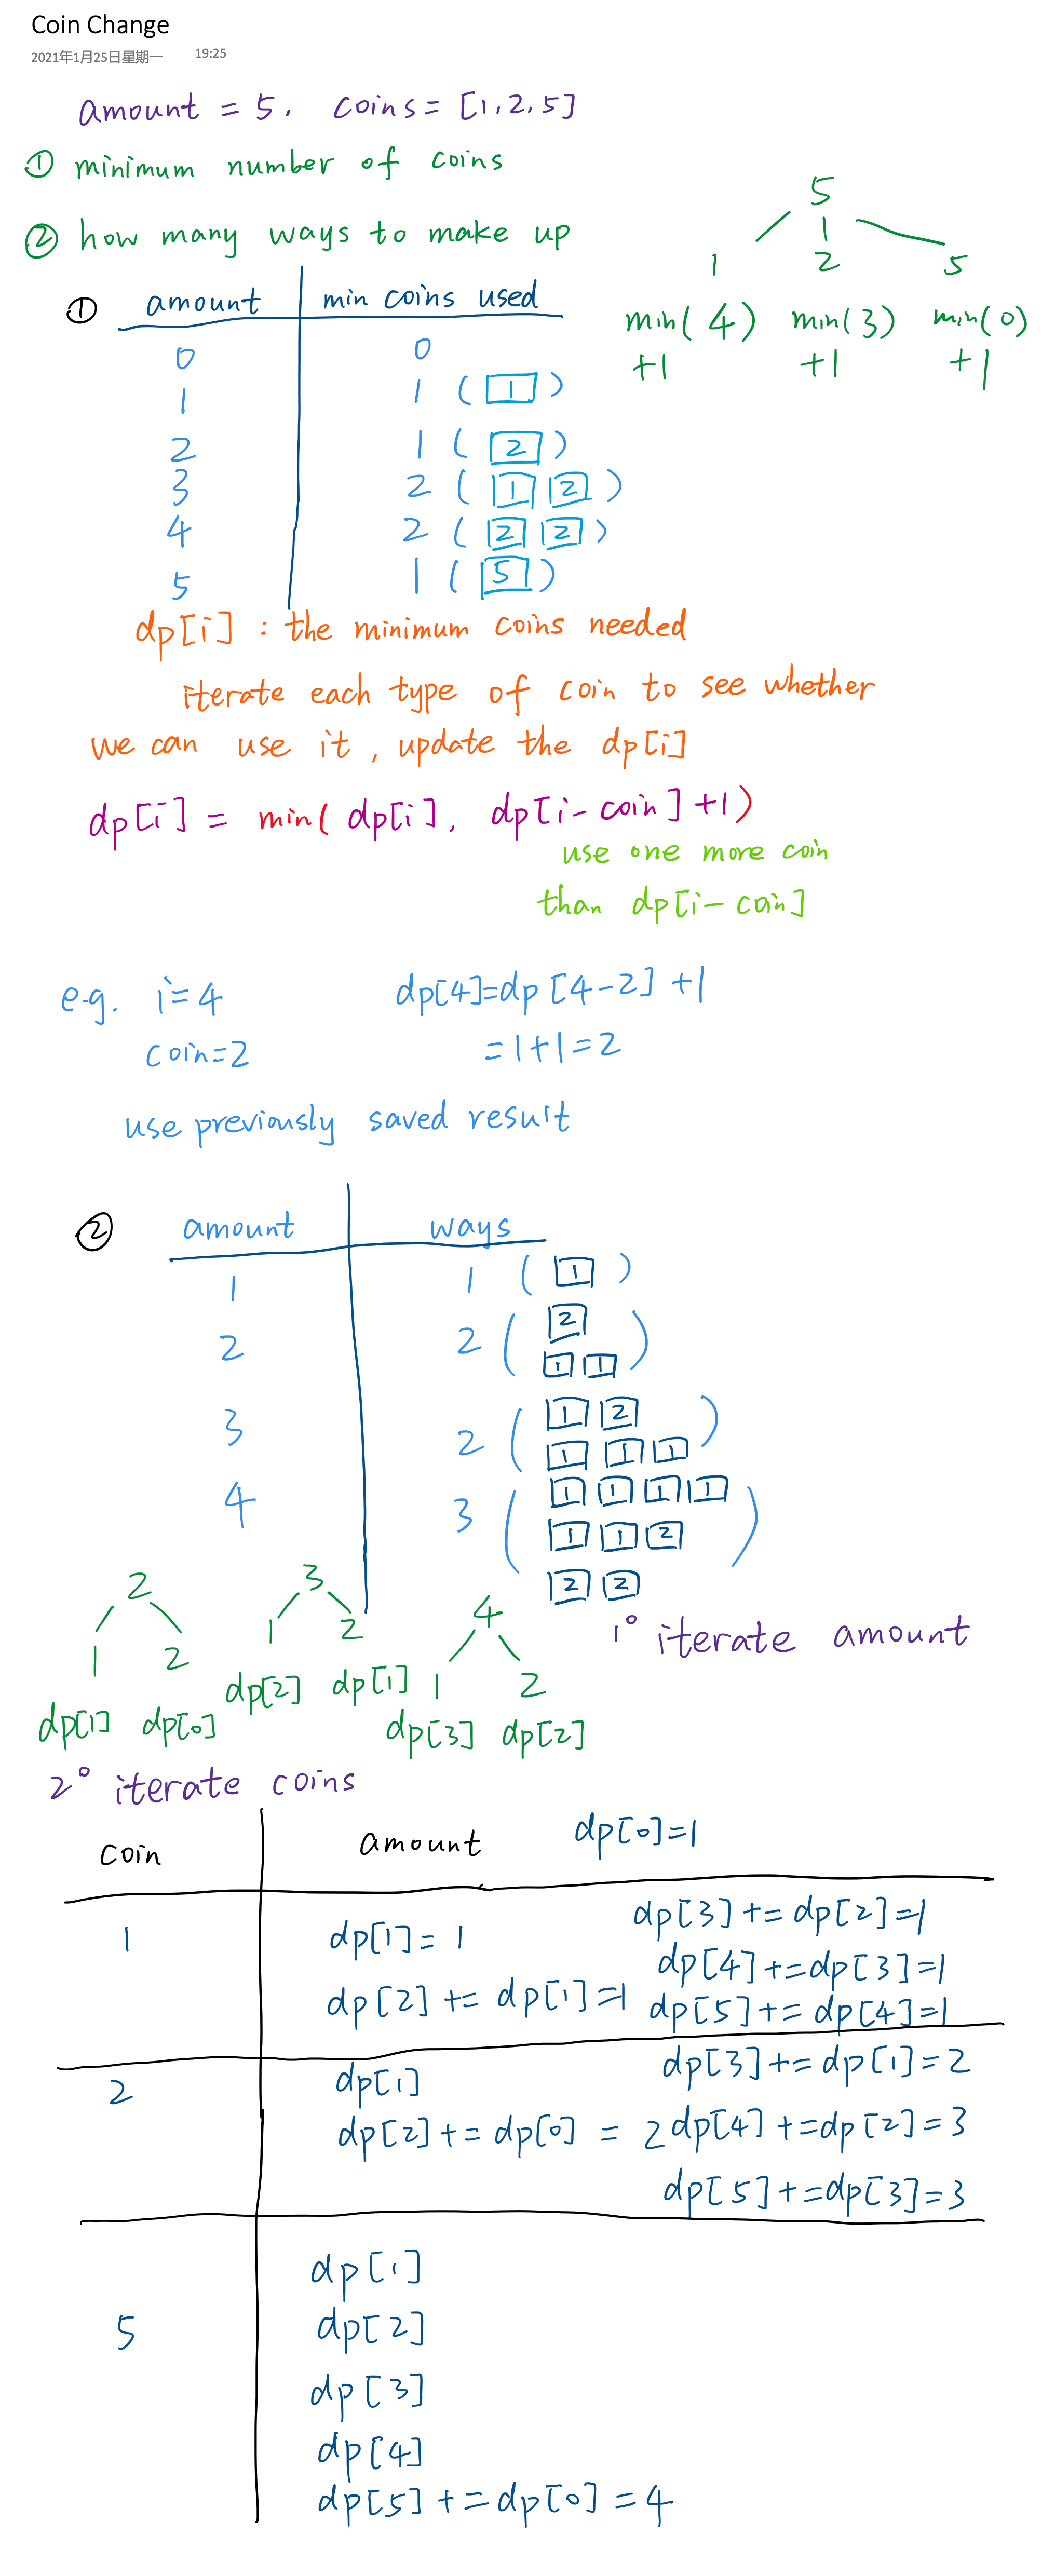 Coin Change
2021年1月25日星期一 19:25
amount = 5, coins = [1, 2, 5]
① minimum number of coins
② how many ways to make up
5
1 2 5
min(4) min(3) min(0)
+1 +1 +1
① amount min coins used
0 0
1 1 ( 1 )
2 1 ( 2 )
3 2 ( 1 2 )
4 2 ( 2 2 )
5 1 ( 5 )
dp[i] : the minimum coins needed
iterate each type of coin to see whether
we can use it, update the dp[i]
dp[i] = min( dp[i], dp[i-coin]+1)
use one more coin
than dp[i-coin]
e.g. i=4 dp[4]=dp[4-2]+1
coin=2 =1+1=2
use previously saved result
② amount ways
1 1 ( 1 )
2 2 ( 2
1 1 )
3 2 ( 1 2
1 1 1 )
4 3 ( 1 1 1 1
1 1 2
2 2 )
2 3 4
1 2 1 2 1 2
dp[1] dp[0] dp[2] dp[1] dp[3] dp[2]
1° iterate amount
2° iterate coins
coin amount dp[0]=1
1 dp[1]=1 dp[3]+=dp[2]=1
dp[2]+=dp[1]=1 dp[4]+=dp[3]=1
dp[5]+=dp[4]=1
2 dp[1] dp[3]+=dp[1]=2
dp[2]+=dp[0]=2 dp[4]+=dp[2]=3
dp[5]+=dp[3]=3
5 dp[1]
dp[2]
dp[3]
dp[4]
dp[5]+=dp[0]=4